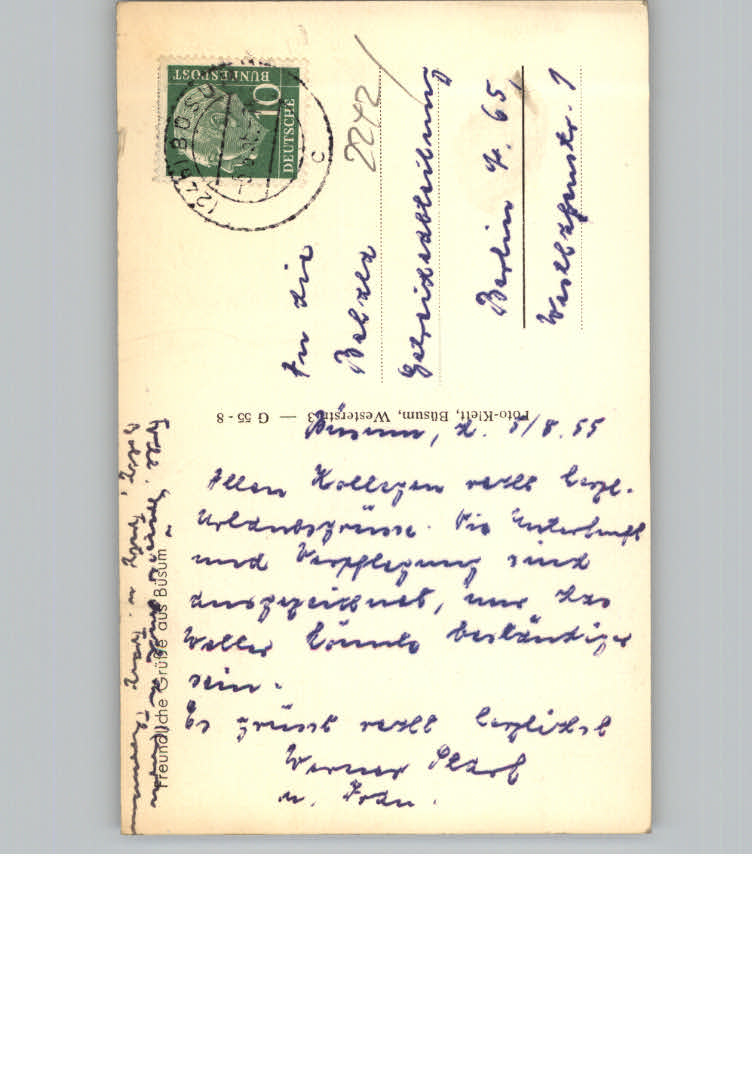 DEUTSCHE
BUNDESPOST
10
(24b) BÜSUM
c
2242
An die
Behala
Getreideabteilung
Berlin N. 65
Westhafenstr. 1
Foto-Klett, Büsum, Westerstr. 3 — G 55 - 8
Büsum, d. 5/8.55
Allen Kollegen recht herzl.
Urlaubsgrüsse. Die Unterkunft
und Verpflegung sind
ausgezeichnet, nur das
Wetter könnte beständiger
sein.
Es grüsst recht herzlichst
Werner
u. Frau.
Freundliche Grüße aus Büsum